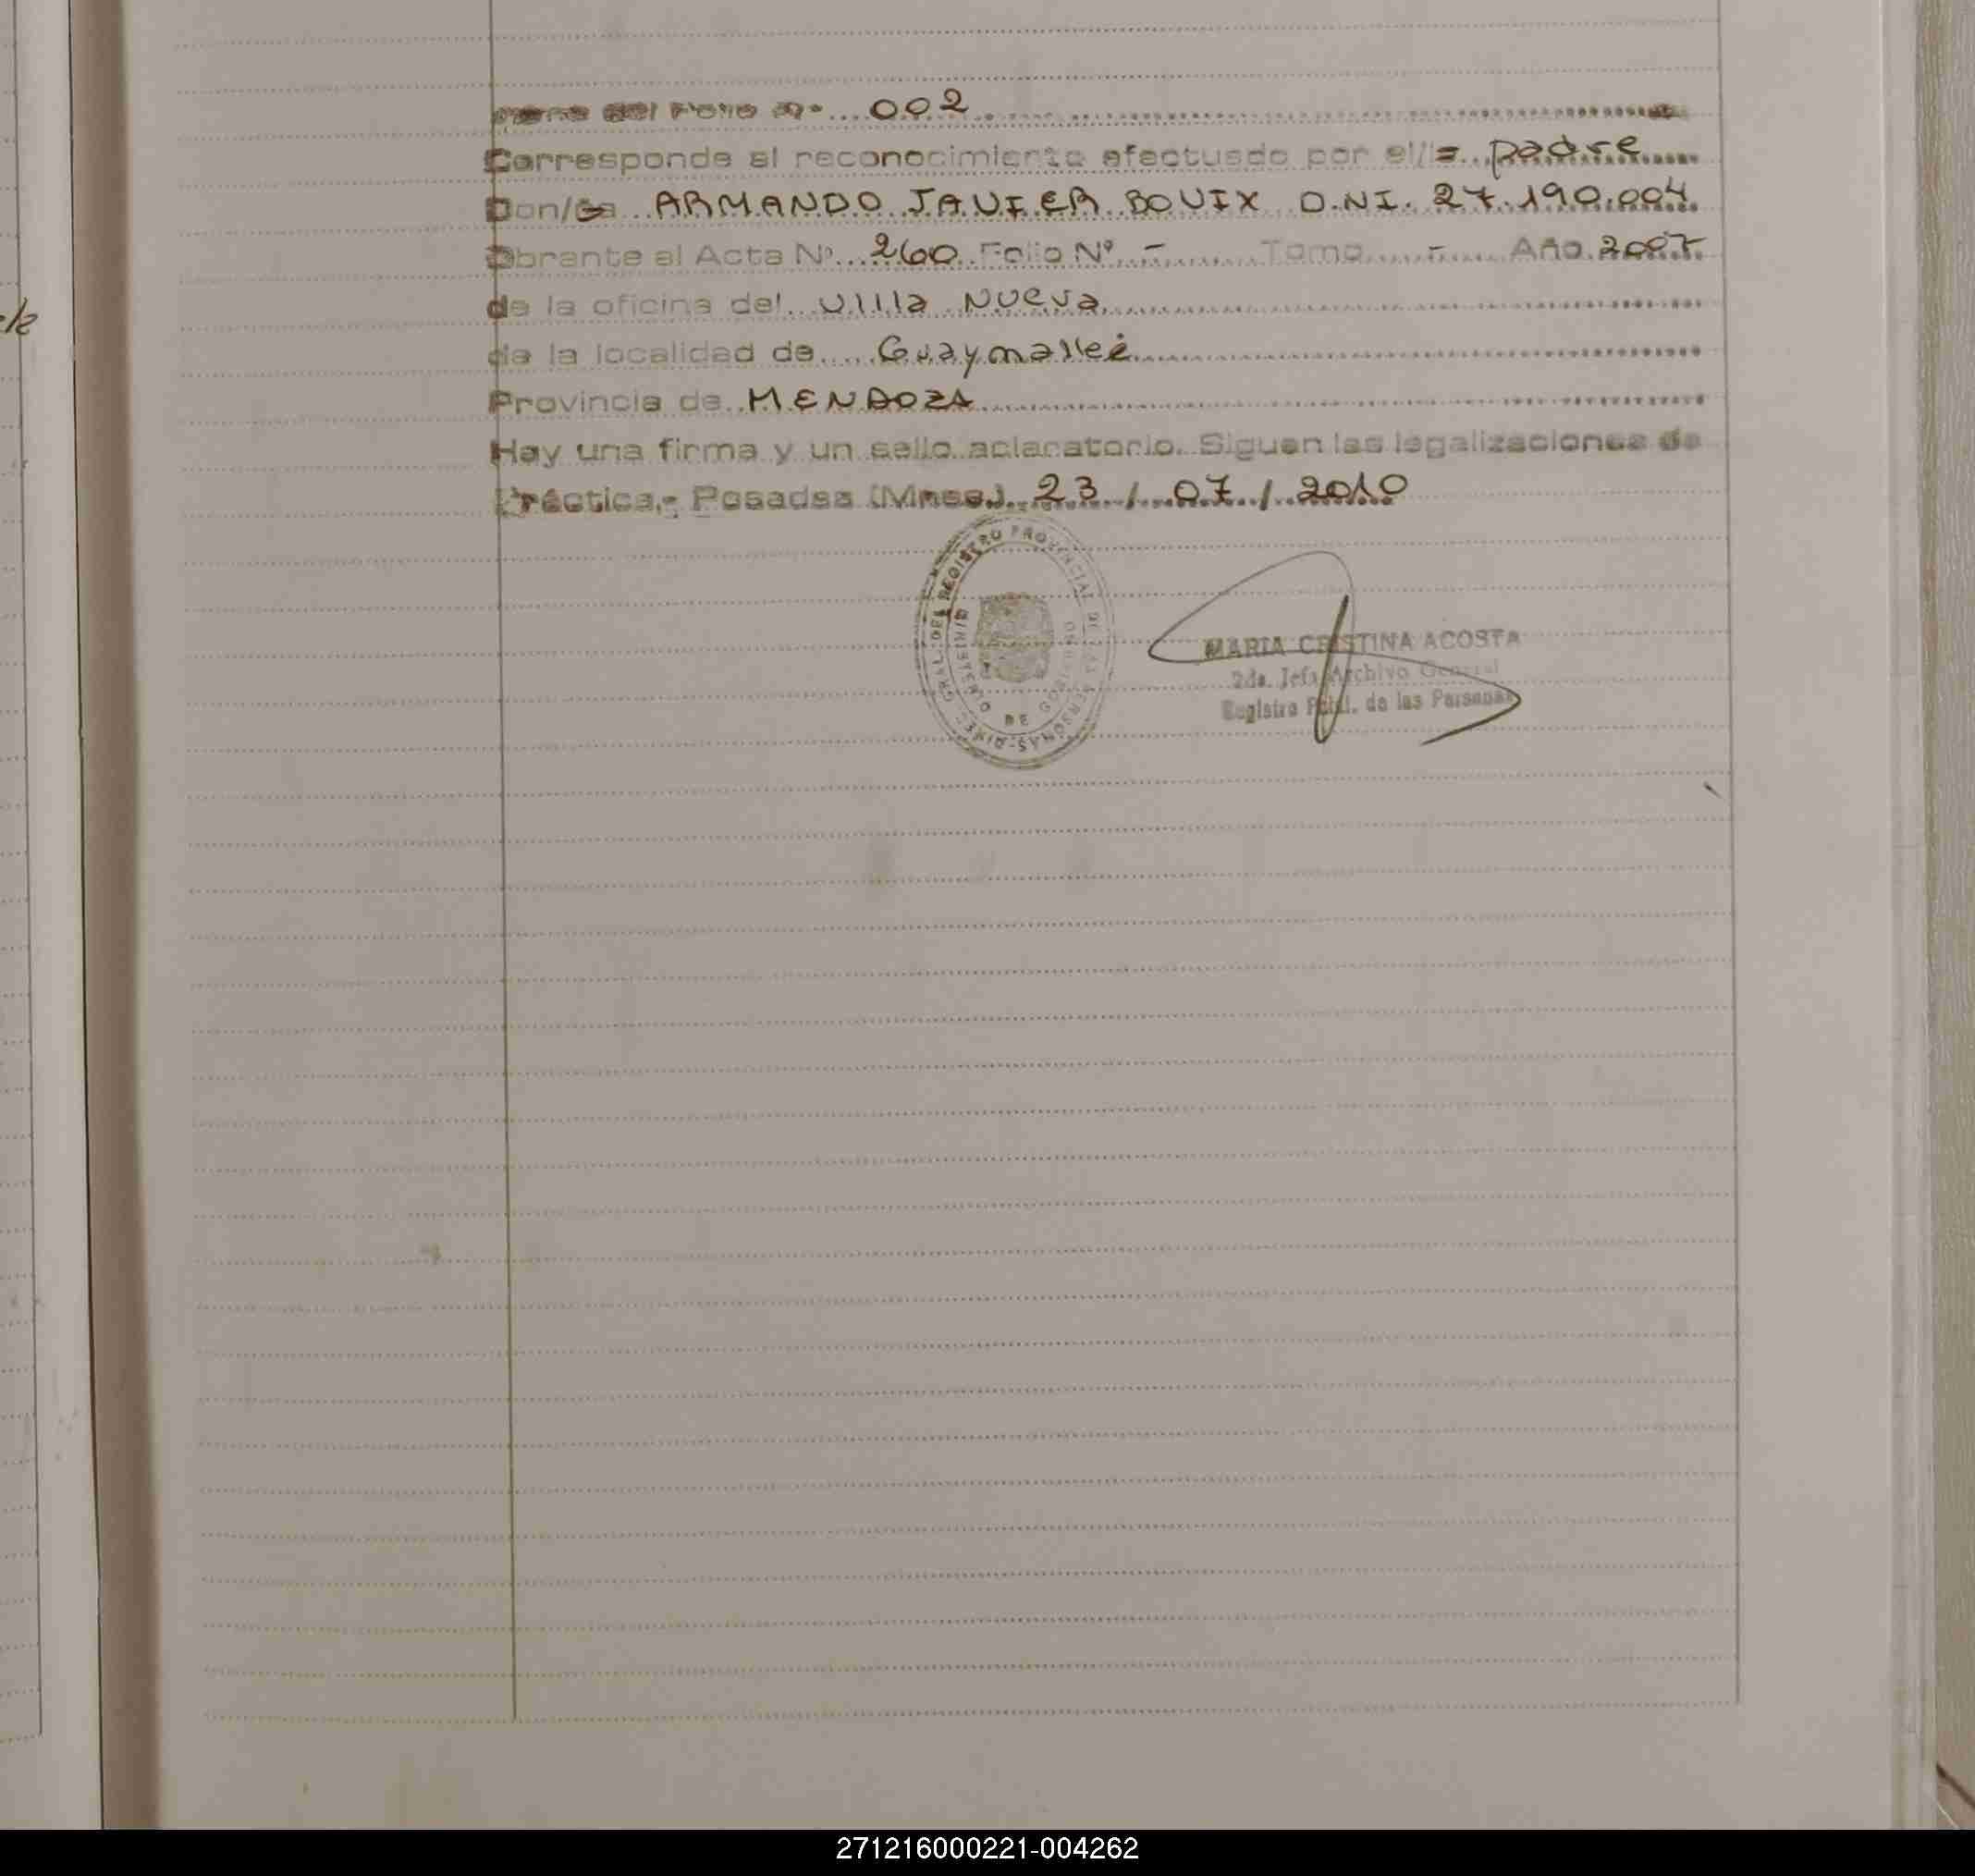 del Folio Nº 002
Corresponde al reconocimiento efectuado por el/la padre
Don/ña ARMANDO JAVIER BOUIX D.N.I. 27.190.004
Obrante al Acta Nº 260 Folio Nº - Tomo - Año 2007
de la oficina del Villa Nueva
de la localidad de Guaymallé
Provincia de MENDOZA
Hay una firma y un sello aclaratorio. Siguen las legalizaciones de
Práctica.- Posadas (Mnes.) 23 / 07 / 2010
GRAL. DEL REGISTRO PROVINCIAL DE LAS PERSONAS-DIREC.
MINISTERIO DE GOBIERNO
MARIA CRISTINA ACOSTA
2da. Jefa Archivo General
Registro Pcial. de las Personas
271216000221-004262